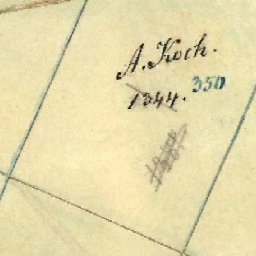 A. Koch.
1344. 350